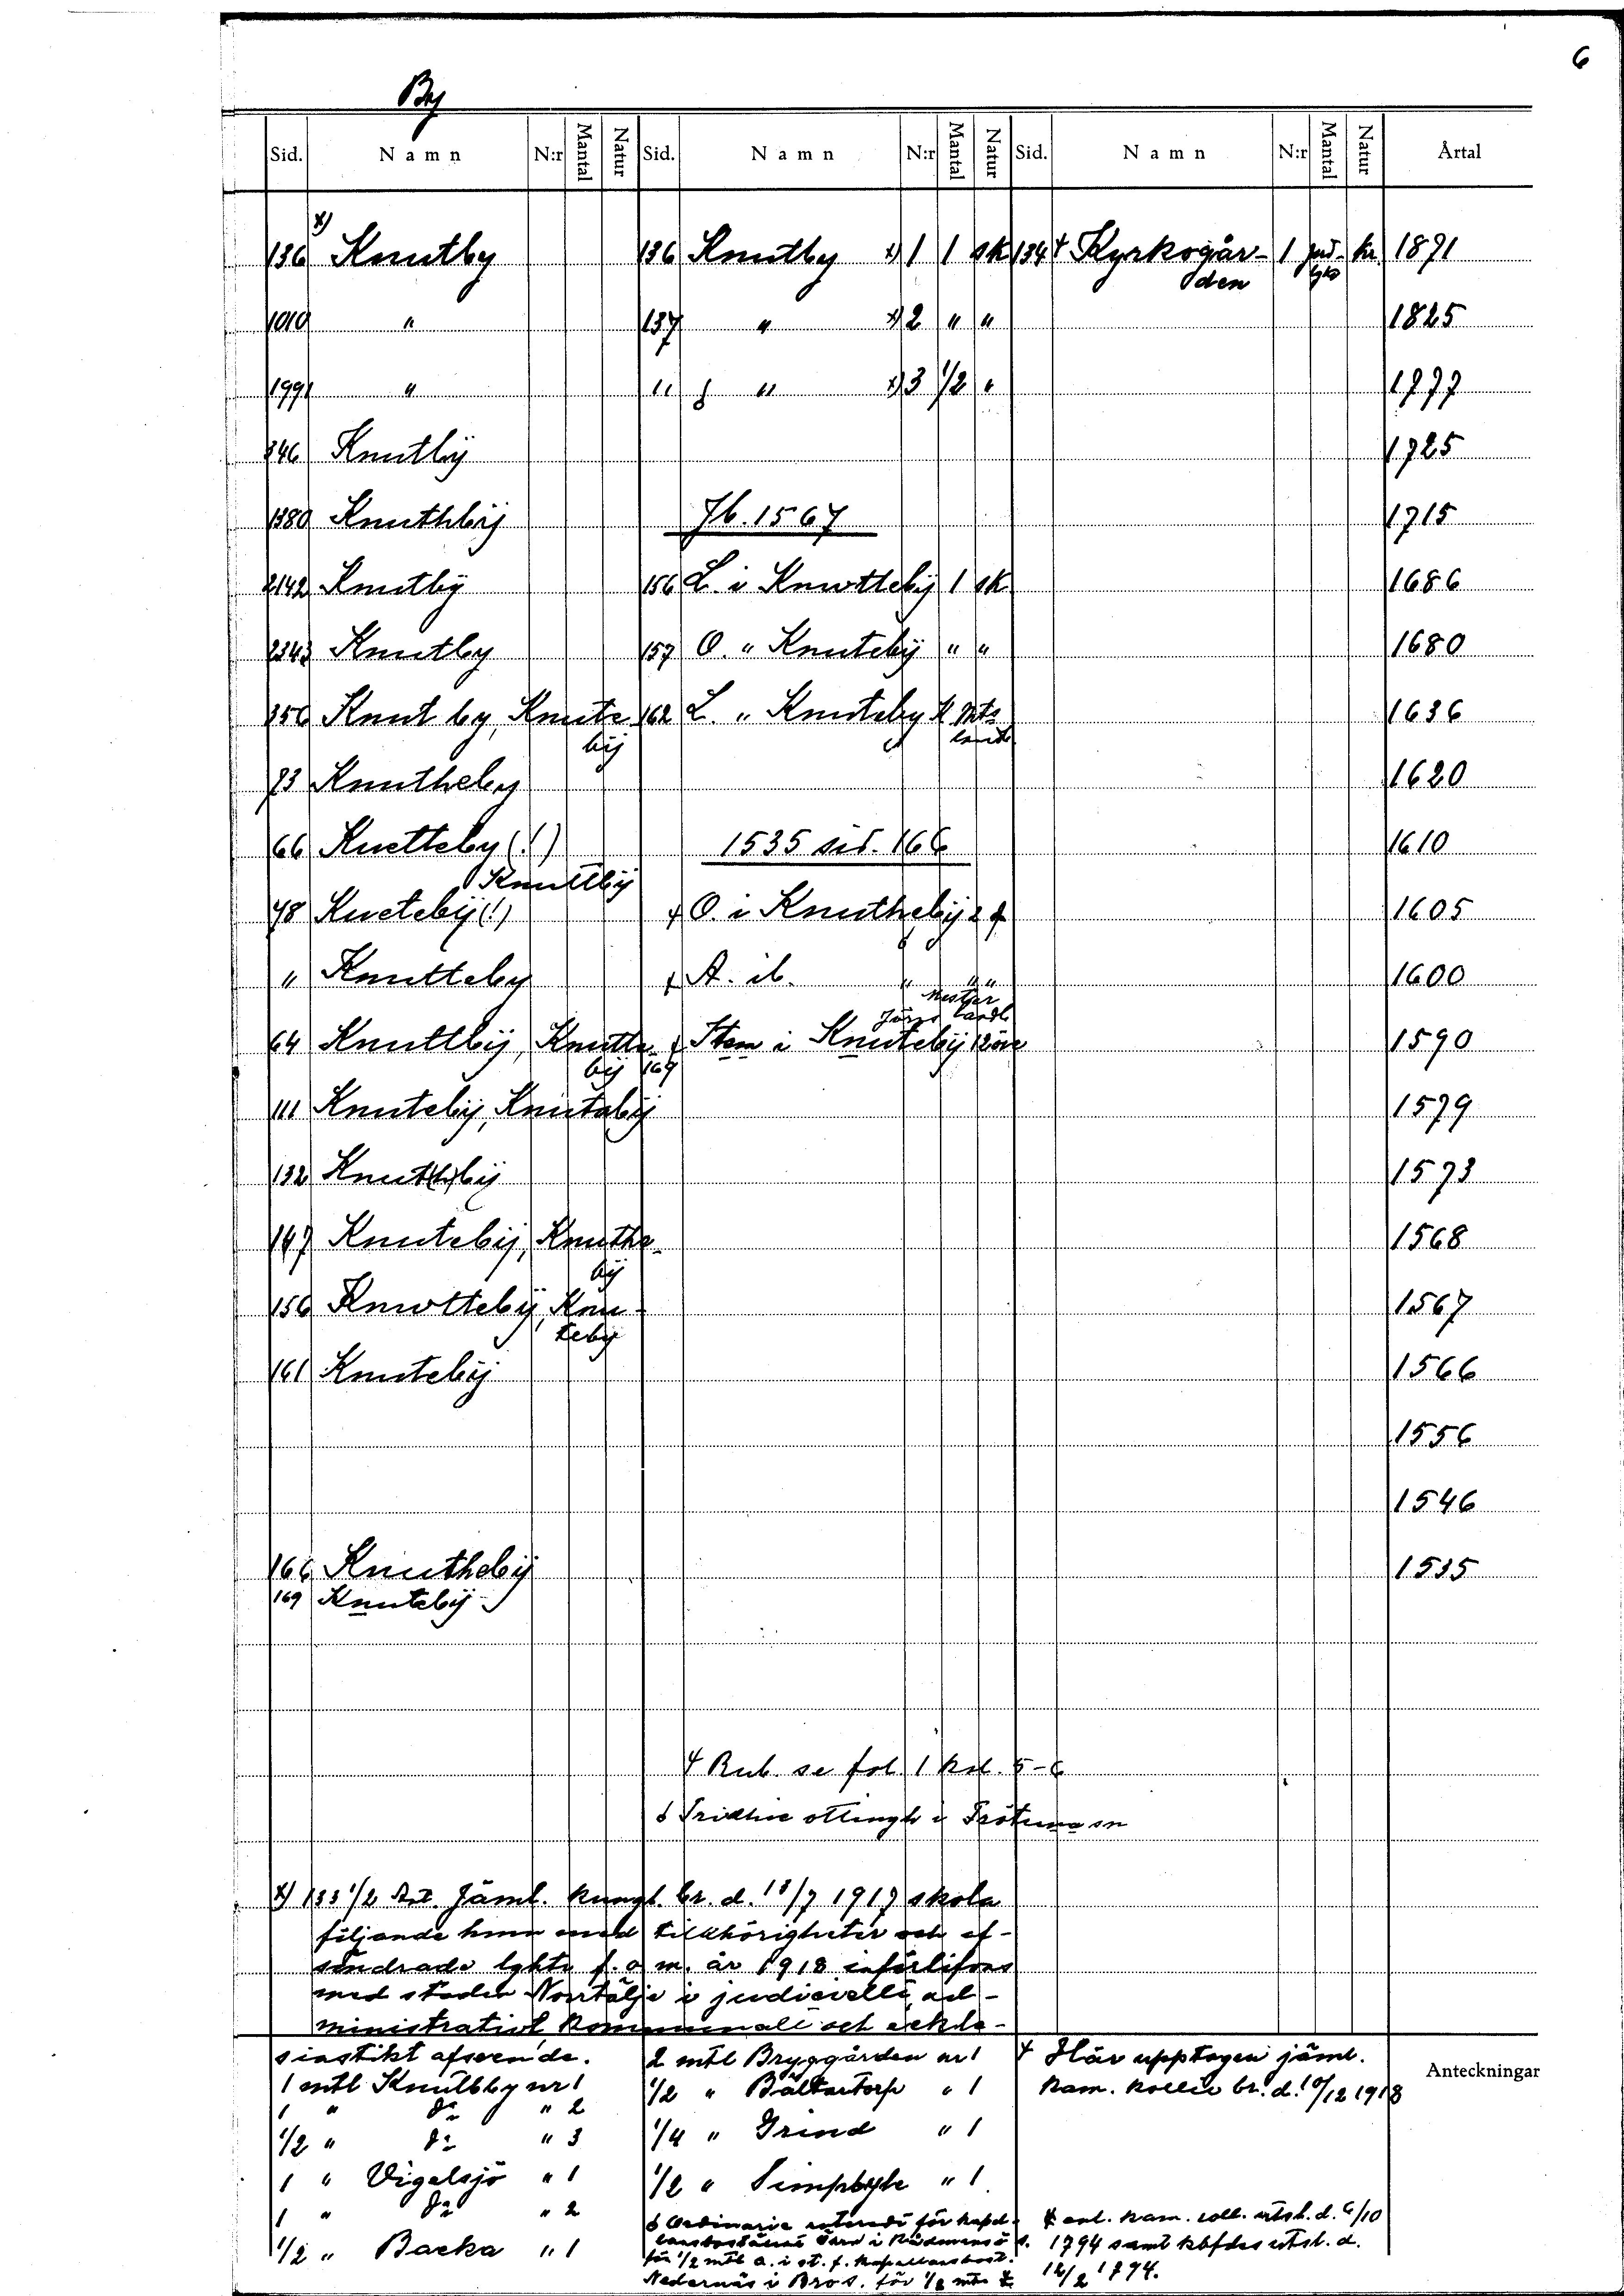 6
By
Sid. Namn N:r Mantal Natur Sid. Namn N:r Mantal Natur Sid. Namn N:r Mantal Natur Årtal
136 x) Knutby 136 Knutby x) 1 1 sk 134 + Kyrkogår- 1 jord- kr 1871
den lghs
1010 " 137 " x) 2 " " 1825
1991 " " " x) 3 1/2 " 1777
846 Knutbÿ 1725
1380 Knuthbÿ Jb. 1567 1715
2142 Knutbÿ 156 L. i Knwttebÿ 1 sk 1686
2343 Knutby 157 O. " Knutebÿ " " 1680
356 Knut by, Knute 162 L. " Knuteby 1636
bÿ land
73 Knutheby 1620
66 Knetteby (!) 1535 sid. 166 1610
Knuttbÿ
78 Knetebÿ (!) + O. i Knuthebÿ 2 1605
" Knutteby + A. ib. " " " 1600
Mester
Jörs landb
64 Knuttbÿ, Knutte- Item i Knutebÿ 12 öre 1590
bÿ 169
111 Knutebÿ, Knutabÿ 1579
132 Knut(h)bÿ 1573
147 Knutebÿ, Knuthe- 1568
bÿ
156 Knwttebÿ, Knu- 1567
tebÿ
161 Knutebÿ 1566
1556
1546
166 Knuthebÿ 1535
169 Knutebÿ
+ Rub. se fol. 1 kol. 5-6
ɗ Tridhie ottingh i Frötuna sn
x) 133 1/2 Ant. Jäml. kungl. br. d. 13/7 1917 skola
följande hmn med tillhörigheter och af-
söndrade lghtr f. o m. år 1918 införlifvas
med staden Norrtälje i judiciellt, ad-
ministrativt, kommunalt och eckle-
siastikt afseende.
1 mtl Knutby nr 1
1 " d:o " 2
1/2 " d:o " 3
1 " Vigelsjö " 1
1 " d:o " 2
1/2 " Backa " 1
2 mtl Bryggården nr 1
1/2 " Bältartorp " 1
1/4 " Grind " 1
1/2 " Simpbyle " 1
Ordinarie för kapel-
lansbostället i
för 1/2 mtl a. i st. f. kapellansbost.
Nedernäs i Bro s. för 1/2 mtl
+ Här upptagen jäml.
Kam. kollii br. d. 10/12 1918
enl. kam. coll. utsl. d. 6/10
1794 samt kbfdes utsl. d.
12/2 1794.
Anteckningar